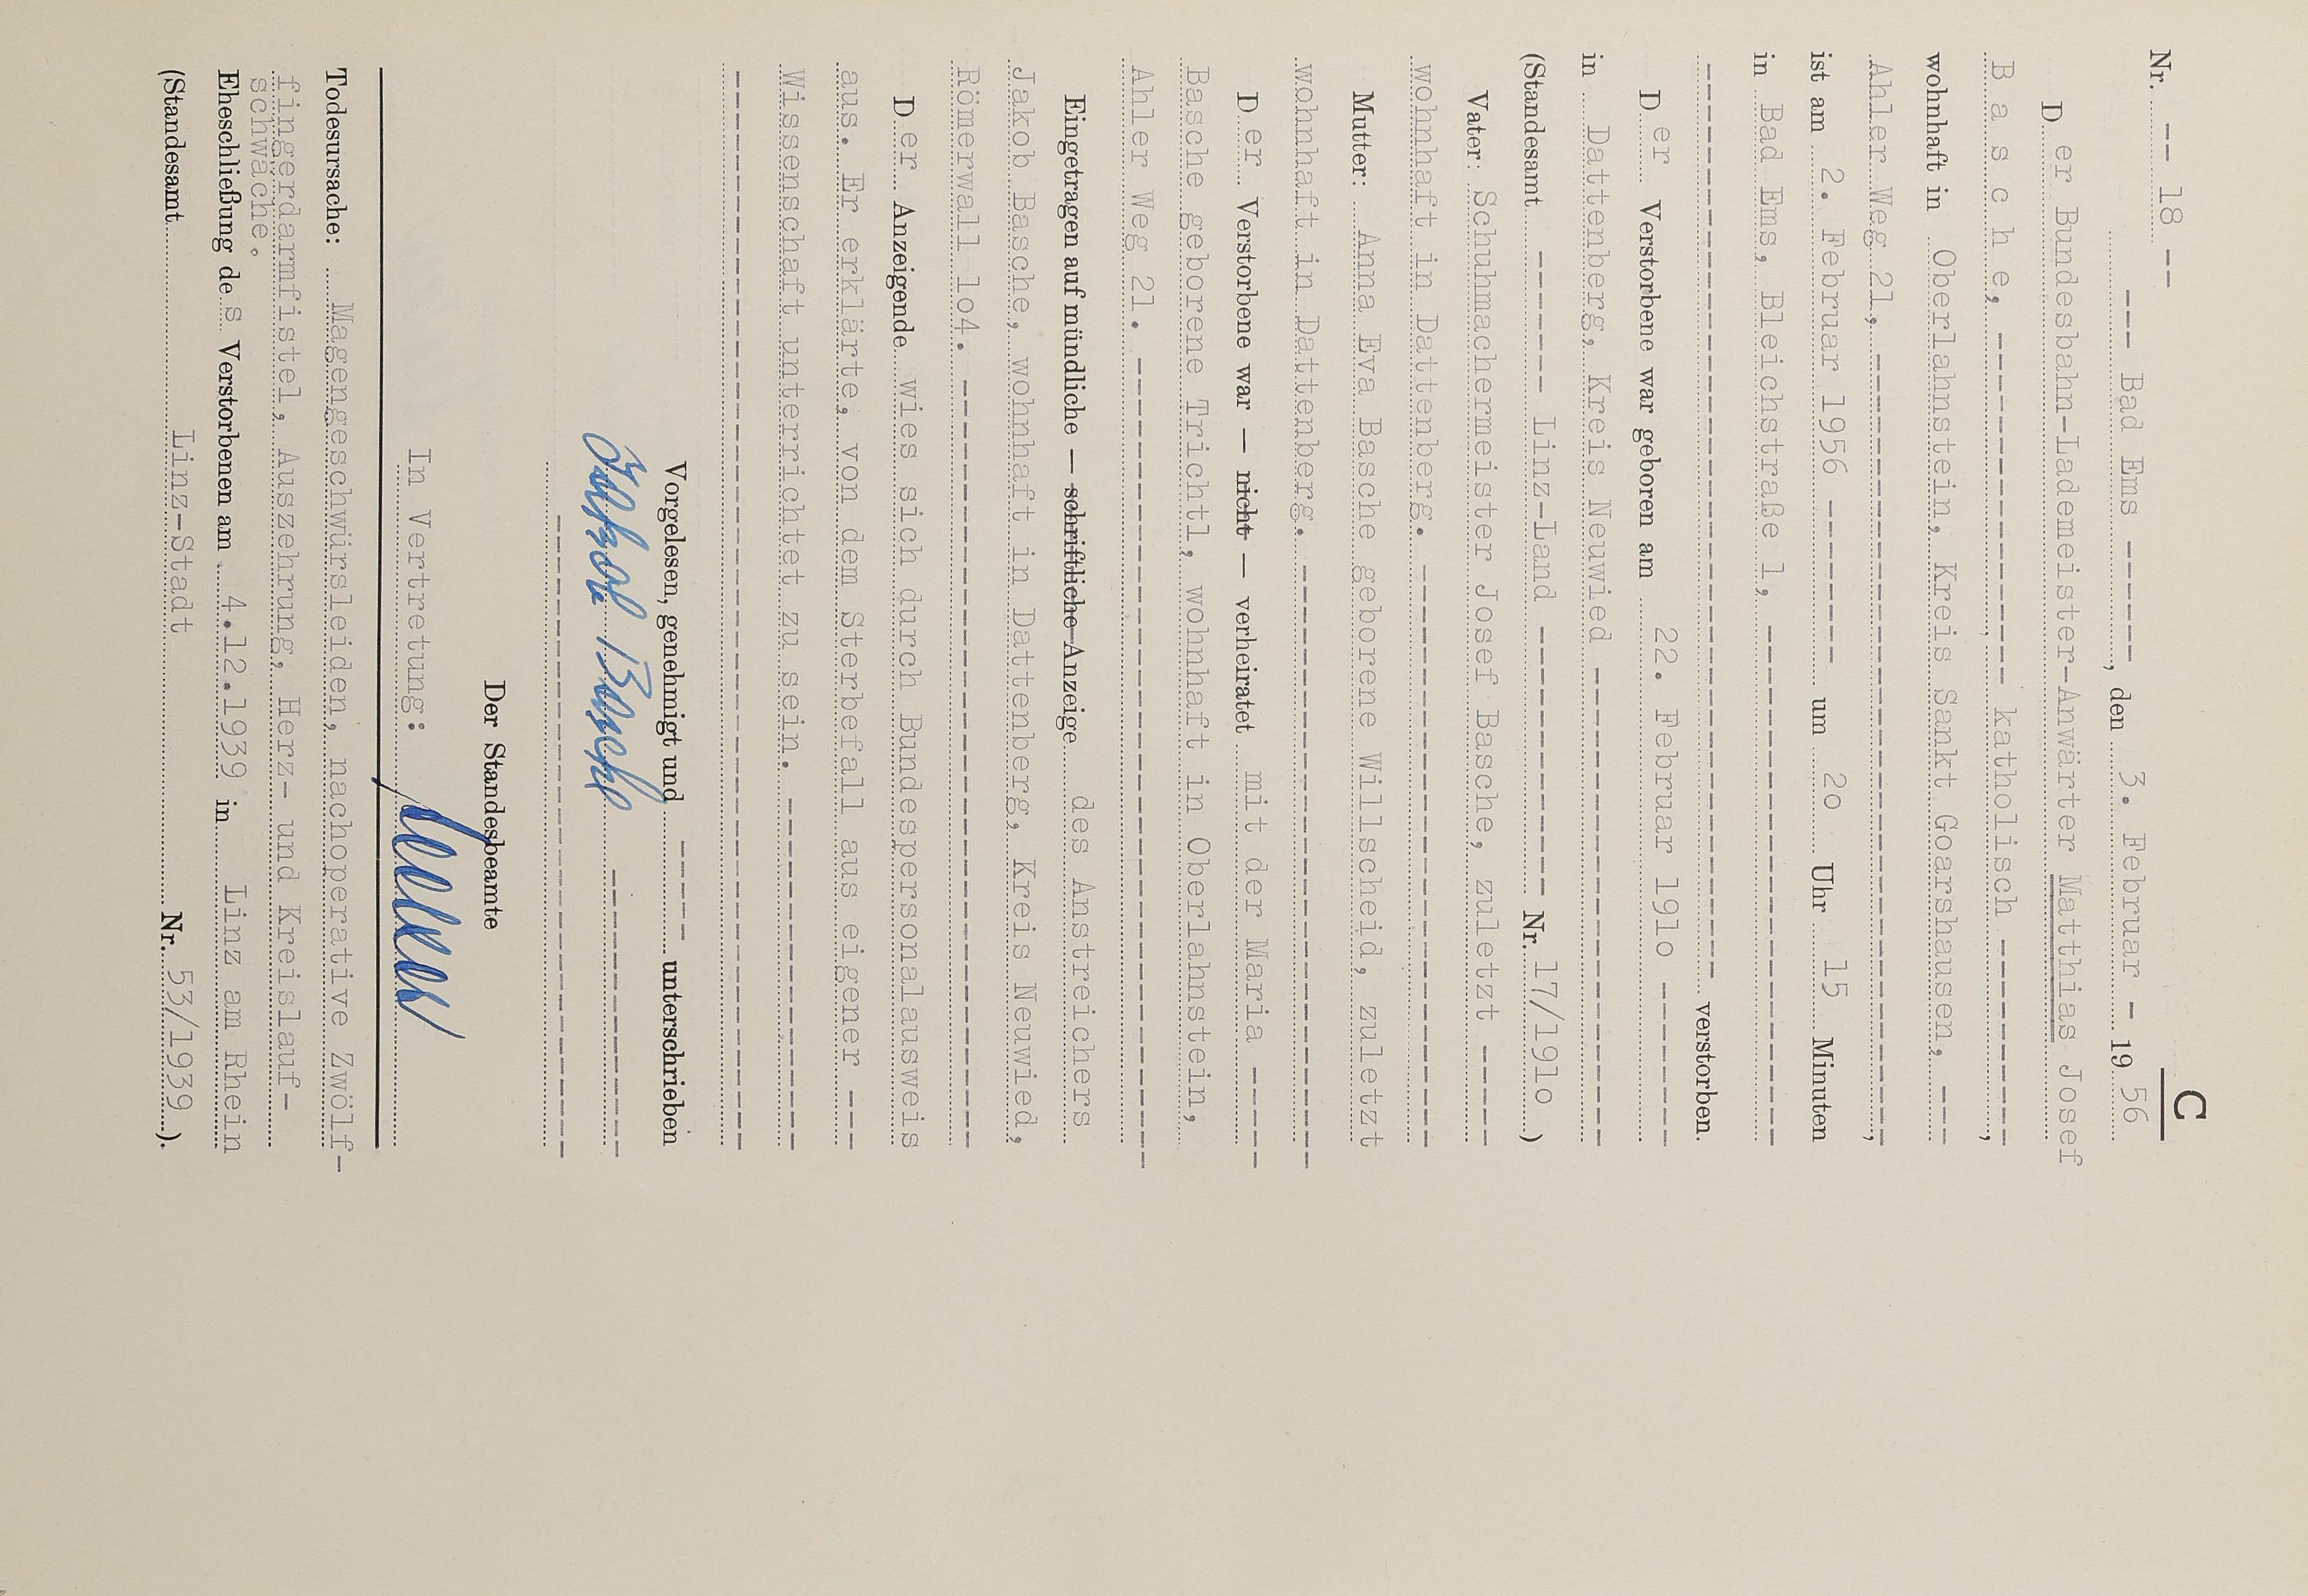 C
Nr. -- 18 --
--- Bad Ems -----, den 3. Februar - 19 56
Der Bundesbahn-Lademeister-Anwärter Matthias Josef
B a s c h e, ---------------, katholisch ---------,
wohnhaft in Oberlahnstein, Kreis Sankt Goarshausen, ---
Ahler Weg 21, -----------------------------------,
ist am 2. Februar 1956 ------- um 2o Uhr 15 Minuten
in Bad Ems, Bleichstraße 1, ----------------------
--------------------------------------------- verstorben.
Der Verstorbene war geboren am 22. Februar 191o -------
in Dattenberg, Kreis Neuwied --------------------
(Standesamt ------- Linz-Land ------------- Nr. 17/191o )
Vater: Schuhmachermeister Josef Basche, zuletzt -----
wohnhaft in Dattenberg. -----------------------------
Mutter: Anna Eva Basche geborene Willscheid, zuletzt
wohnhaft in Dattenberg. ------------------------------
Der Verstorbene war — nicht — verheiratet mit der Maria -----
Basche geborene Trichtl, wohnhaft in Oberlahnstein,
Ahler Weg 21. ---------------------------------------
Eingetragen auf mündliche — schriftliche Anzeige des Anstreichers
Jakob Basche, wohnhaft in Dattenberg, Kreis Neuwied,
Römerwall 1o4. --------------------------------------
Der Anzeigende wies sich durch Bundespersonalausweis
aus. Er erklärte, von dem Sterbefall aus eigener ---
Wissenschaft unterrichtet zu sein. -----------------
-----------------------------------------------------
Vorgelesen, genehmigt und ---- unterschrieben
Jakob Basche --------------
-------------------------------
Der Standesbeamte
In Vertretung:
Todesursache: Magengeschwürsleiden, nachoperative Zwölf-
fingerdarmfistel, Auszehrung, Herz- und Kreislauf-
schwäche.
Eheschließung des Verstorbenen am 4.12.1939 in Linz am Rhein
(Standesamt Linz-Stadt Nr. 53/1939 ).